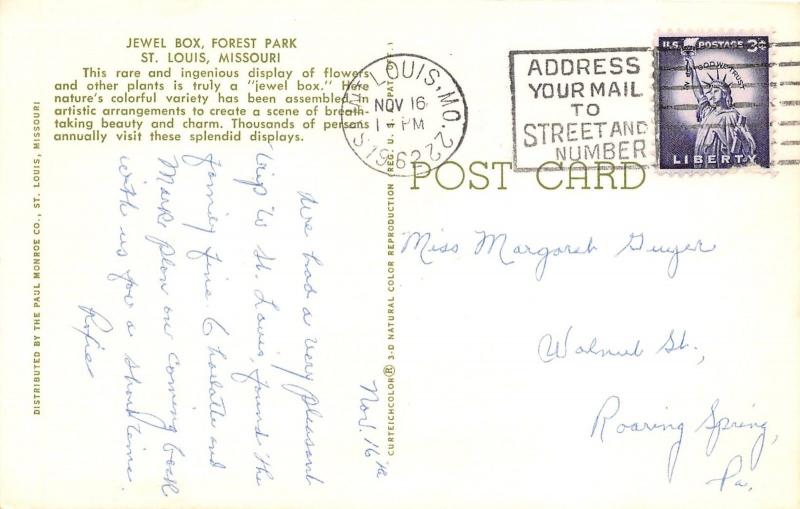 JEWEL BOX, FOREST PARK
ST. LOUIS, MISSOURI
This rare and ingenious display of flowers
and other plants is truly a "jewel box." Here
nature's colorful variety has been assembled in
artistic arrangements to create a scene of breath-
taking beauty and charm. Thousands of persons
annually visit these splendid displays.
DISTRIBUTED BY THE PAUL MONROE CO., ST. LOUIS, MISSOURI
Nov. 16th
We had a very pleasant
trip to St. Louis, found the
family fine. Charlotte and
Mark plan on coming back
with us for a short time.
CURTEICHCOLOR® 3-D NATURAL COLOR REPRODUCTION (REG. U. S. PAT. OFF.)
SAINT LOUIS, MO. 22
NOV 16
1 PM
1962
ADDRESS
YOUR MAIL
TO
STREET AND
NUMBER
U.S. POSTAGE 3¢
IN GOD WE TRUST
LIBERTY
POST CARD
Miss Margaret Guyer
Walnut St.,
Roaring Spring,
Pa.